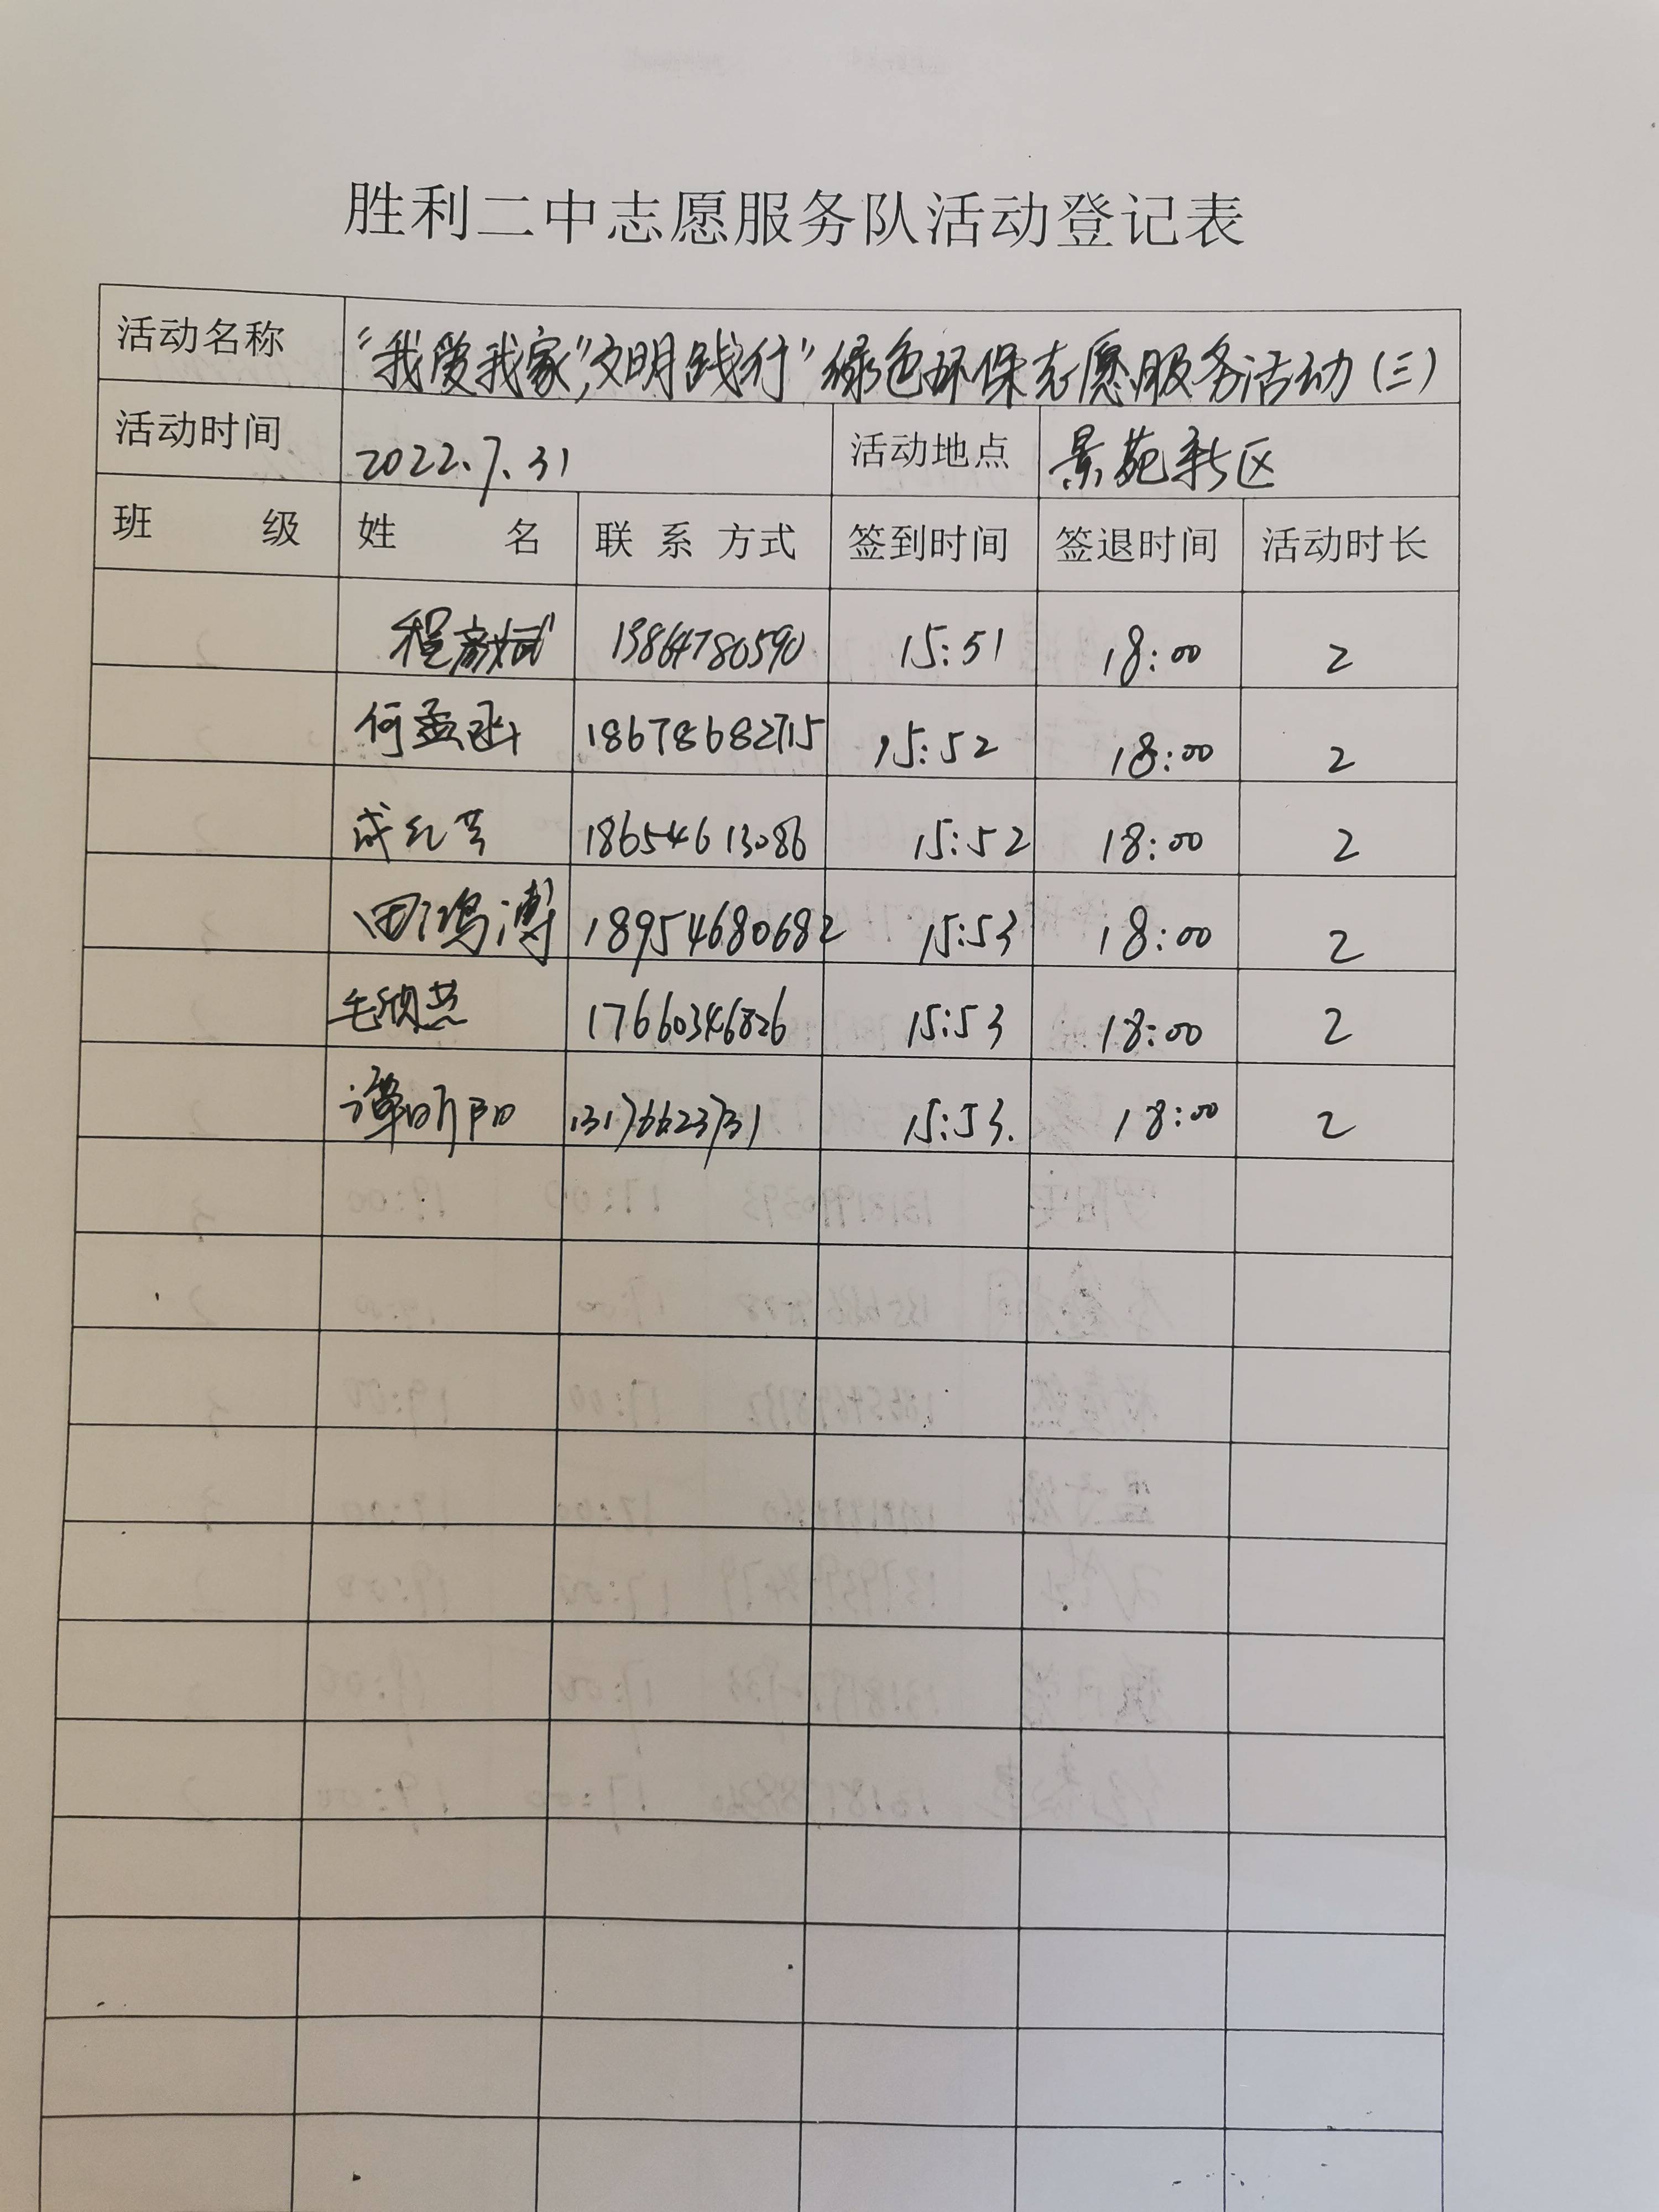 胜利二中志愿服务队活动登记表
活动名称 “我爱我家,文明践行”绿色环保志愿服务活动(三)
活动时间 2022.7.31 活动地点 景苑新区
班 级 姓 名 联 系 方式 签到时间 签退时间 活动时长
程彦斌 13864780590 15:51 18:00 2
何孟函 18678682715 15:52 18:00 2
18654613086 15:52 18:00 2
田鸿溥 18954680682 15:53 18:00 2
毛欣燕 17660346826 15:53 18:00 2
谭昕阳 13176623731 15:53. 18:00 2